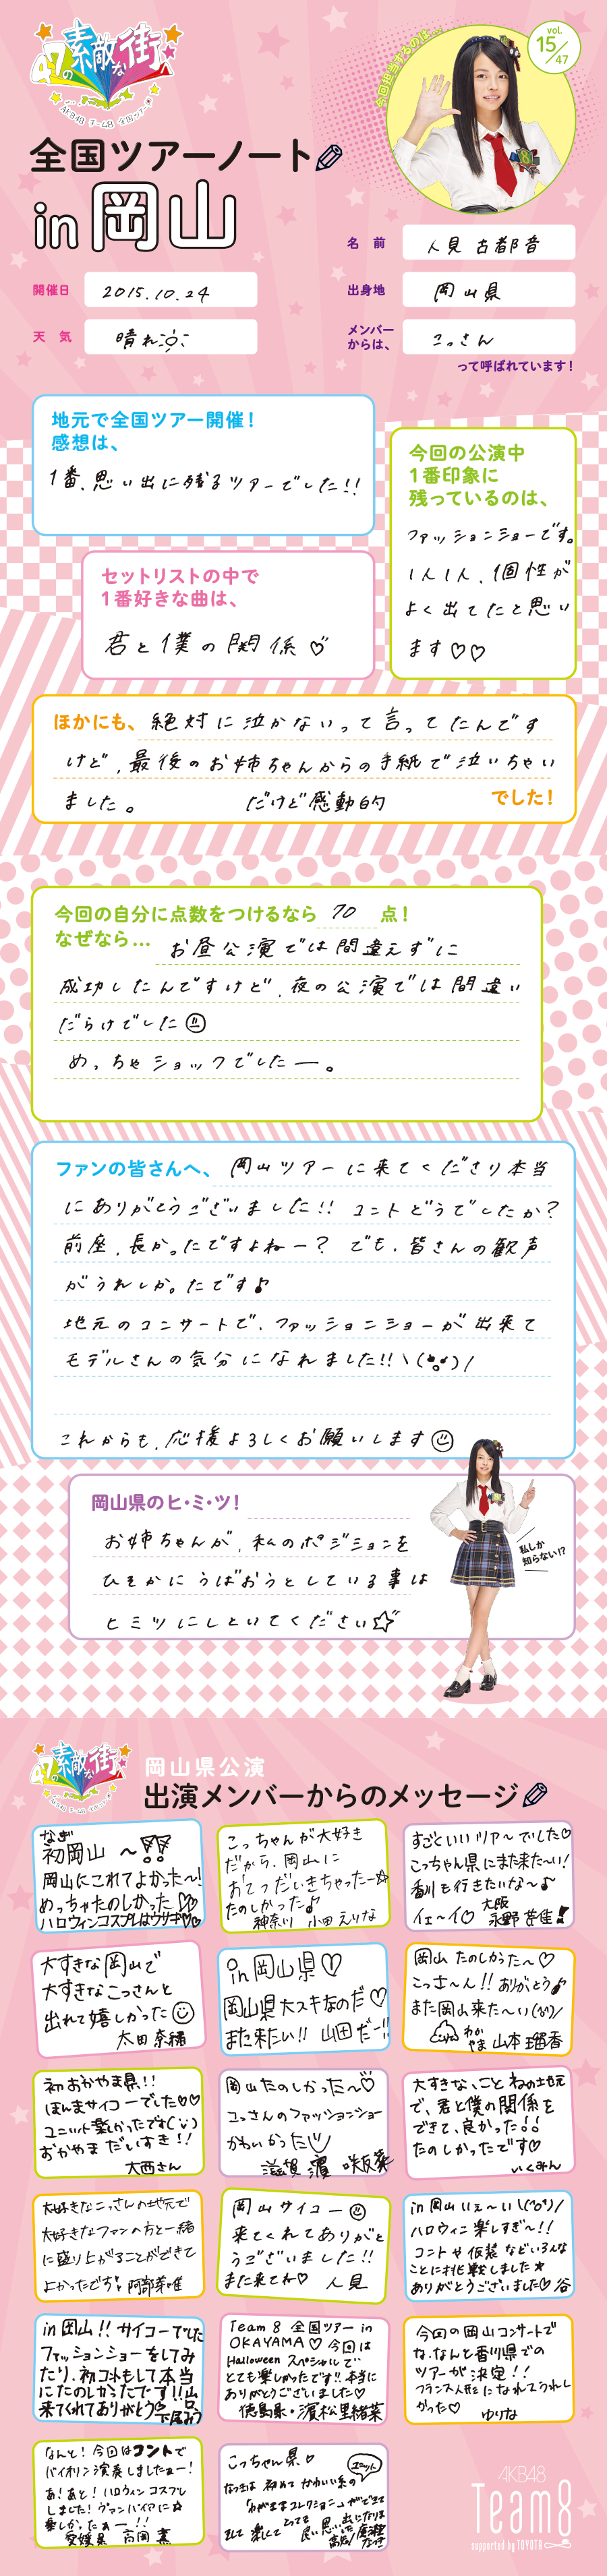 47の素敵な街
AKB48 チーム8 全国ツアー
今回担当するのは…
vol.
15/47
全国ツアーノート
in 岡山
名 前
人見 古都音
開催日
2015.10.24
出身地
岡山県
天 気
晴れ
メンバー
からは、
こっさん
って呼ばれています!
地元で全国ツアー開催!
感想は、
1番、思い出に残るツアーでした!!
今回の公演中
1番印象に
残っているのは、
ファッションショーです。
1人1人、個性が
よく出てたと思い
ます♡♡
セットリストの中で
1番好きな曲は、
君と僕の関係♡
ほかにも、絶対に泣かないって言ってたんです
けど、最後のお姉ちゃんからの手紙で泣いちゃい
ました。 だけど感動的 でした!
今回の自分に点数をつけるなら 70 点!
なぜなら… お昼公演では間違えずに
成功したんですけど、夜の公演では間違い
だらけでした
めっちゃショックでしたー。
ファンの皆さんへ、岡山ツアーに来てくださり本当
にありがとうございました!! コントどうでしたか?
前座、長かったですよねー? でも、皆さんの歓声
がうれしかったです♪
地元のコンサートで、ファッションショーが出来て
モデルさんの気分になれました!!
これからも、応援よろしくお願いします
岡山県のヒ・ミ・ツ!
お姉ちゃんが、私のポジションを
ひそかにうばおうとしている事は
ヒミツにしといてください☆
私しか
知らない!?
47の素敵な街
AKB48 チーム8 全国ツアー
岡山県公演
出演メンバーからのメッセージ
なぎ
初岡山 〜!!
岡山にこれてよかった〜!
めっちゃたのしかった♡♡
ハロウィンコスプレはウサギ♡♡
こっちゃんが大好き
だから、岡山に
おてつだいきちゃったー☆
たのしかった♪
神奈川 小田えりな
すごくいいツアーでした♡
こっちゃん県にまた来た〜い!
香川も行きたいな〜♪
イェ〜イ♡ 大阪
永野芹佳!
大すきな岡山で
大すきなこっさんと
出れて嬉しかった
太田奈緒
in 岡山県♡!
岡山県大スキなのだ♡
また来たい!! 山田だー!!
岡山 たのしかった〜♡
こっさ〜ん!! ありがとう♪
また岡山来た〜い(^o^)/
わか
やま 山本瑠香
初おかやま県!!
ほんまサイコーでした♡♡
ユニット楽しかったです
おかやま だいすき!!
大西さん
岡山たのしかった〜♡
こっさんのファッションショー
かわいかった
滋賀 濵 咲友菜
大すきな、ことねの地元
で、君と僕の関係を
できて、良かった!!
たのしかったです♡
いくみん
大好きなこっさんの地元で
大好きなファンの方と一緒
に盛り上がることができて
よかったです! 阿部芽唯
岡山サイコー
来てくれてありがと
うございました!!
また来てね♡ 人見
in岡山いぇ〜い\(^o^)/
ハロウィン楽しすぎ〜!!
コントや仮装などいろんな
ことに挑戦しました★
ありがとうございました♡ 谷
in 岡山!! サイコーでした
ファッションショーをしてみ
たり、初コントもして本当
にたのしかったです!!山
来てくれてありがとう
下尾みう
Team 8 全国ツアー in
OKAYAMA♡ 今回は
Halloween スペシャルで
とても楽しかったです!! 本当に
ありがとうございました♡
徳島県・濵松里緒菜
今回の岡山コンサートで
な、なんと香川県での
ツアーが決定!!
フランス人形になれてうれし
かった♡ ゆりな
なんと! 今回はコントで
バイオリン演奏しましたぁー!
あ!あと! ハロウィン コスプレ
しました! ヴァンパイアに☆
楽しかったぁー!!
愛媛県 高岡 薫
こっちゃん県♡
なつきは 初めて かわいい系の ユニット
「わがままコレクション」ができて
とっても
そして 楽しくて 良い思い出になりま
した
高知/廣瀬
なつき
AKB48
Team8
supported by TOYOTA